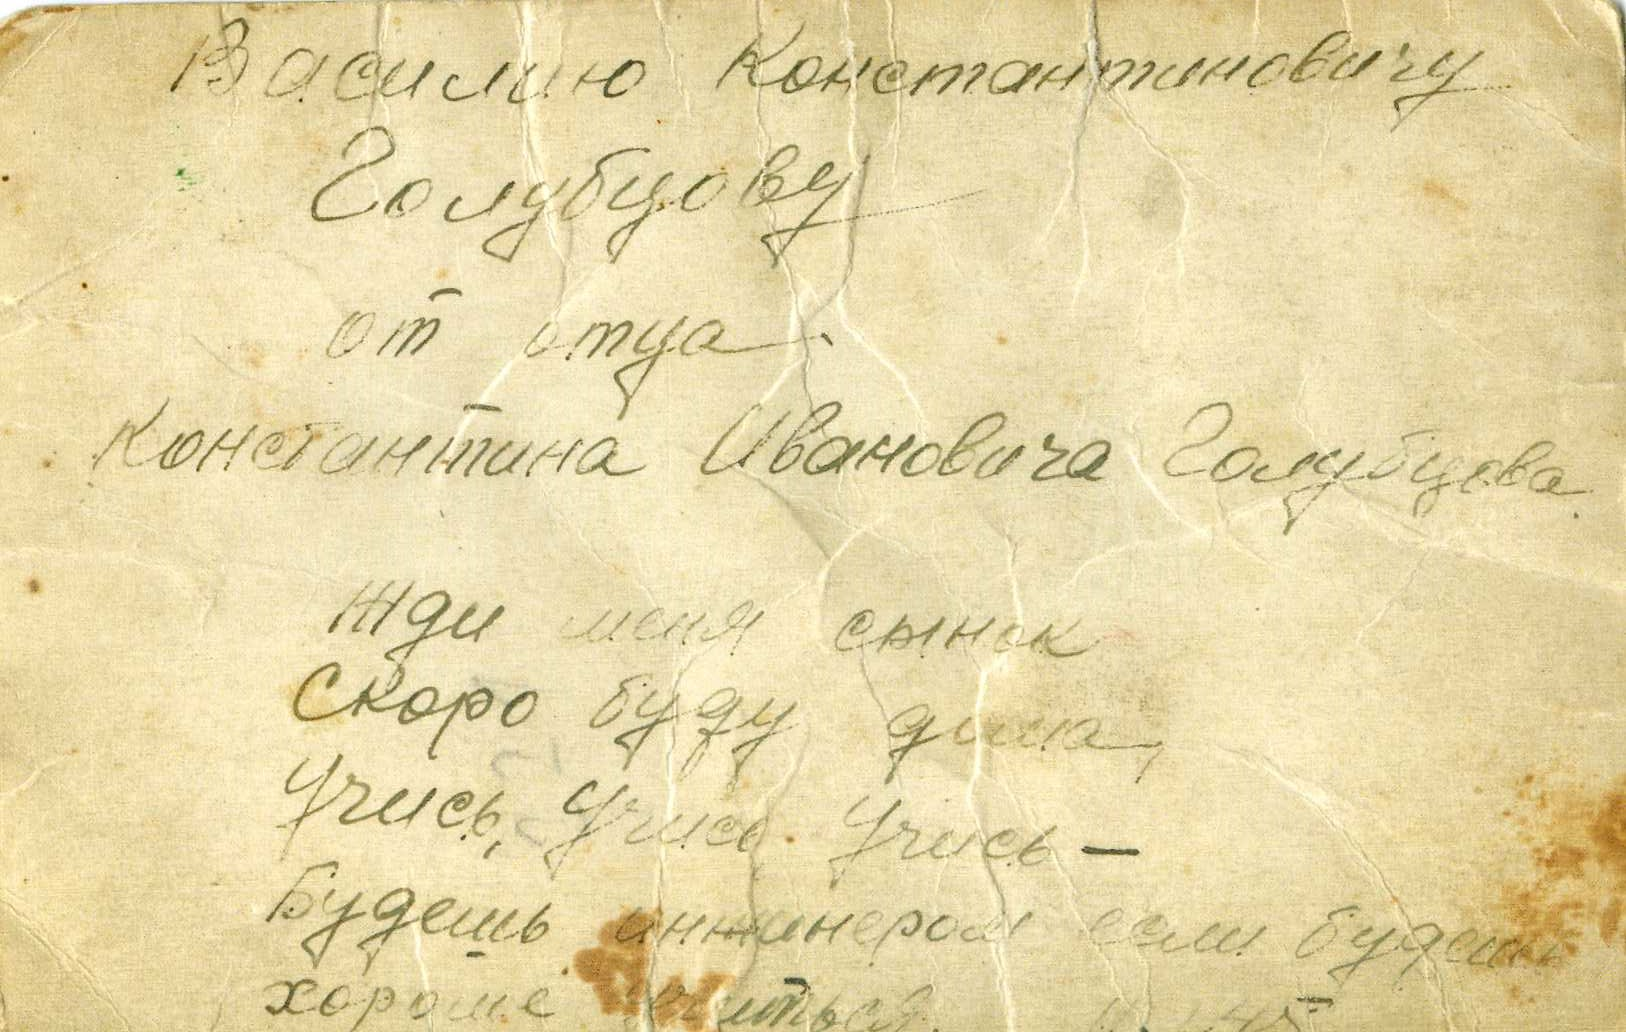 Василию Константиновичу
Голубцову
от отца
Константина Ивановича Голубцова.
Жди меня сынок
Скоро буду дома,
Учись, Учись Учись —
Будешь инжинером если будешь
хороше учиться